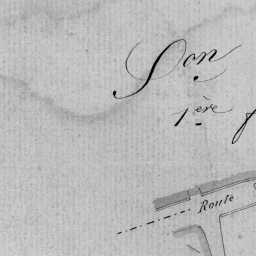 Son
1ère
Route